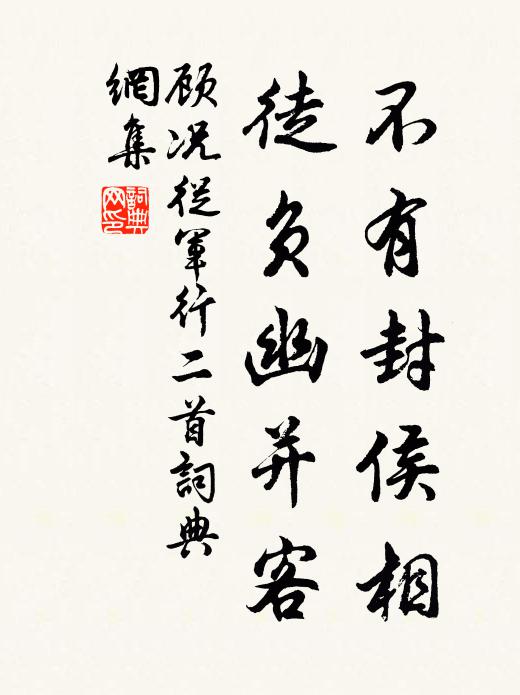 不有封侯相
徒负幽并客
顾况從軍行二首詞典
網集
詞典
网印